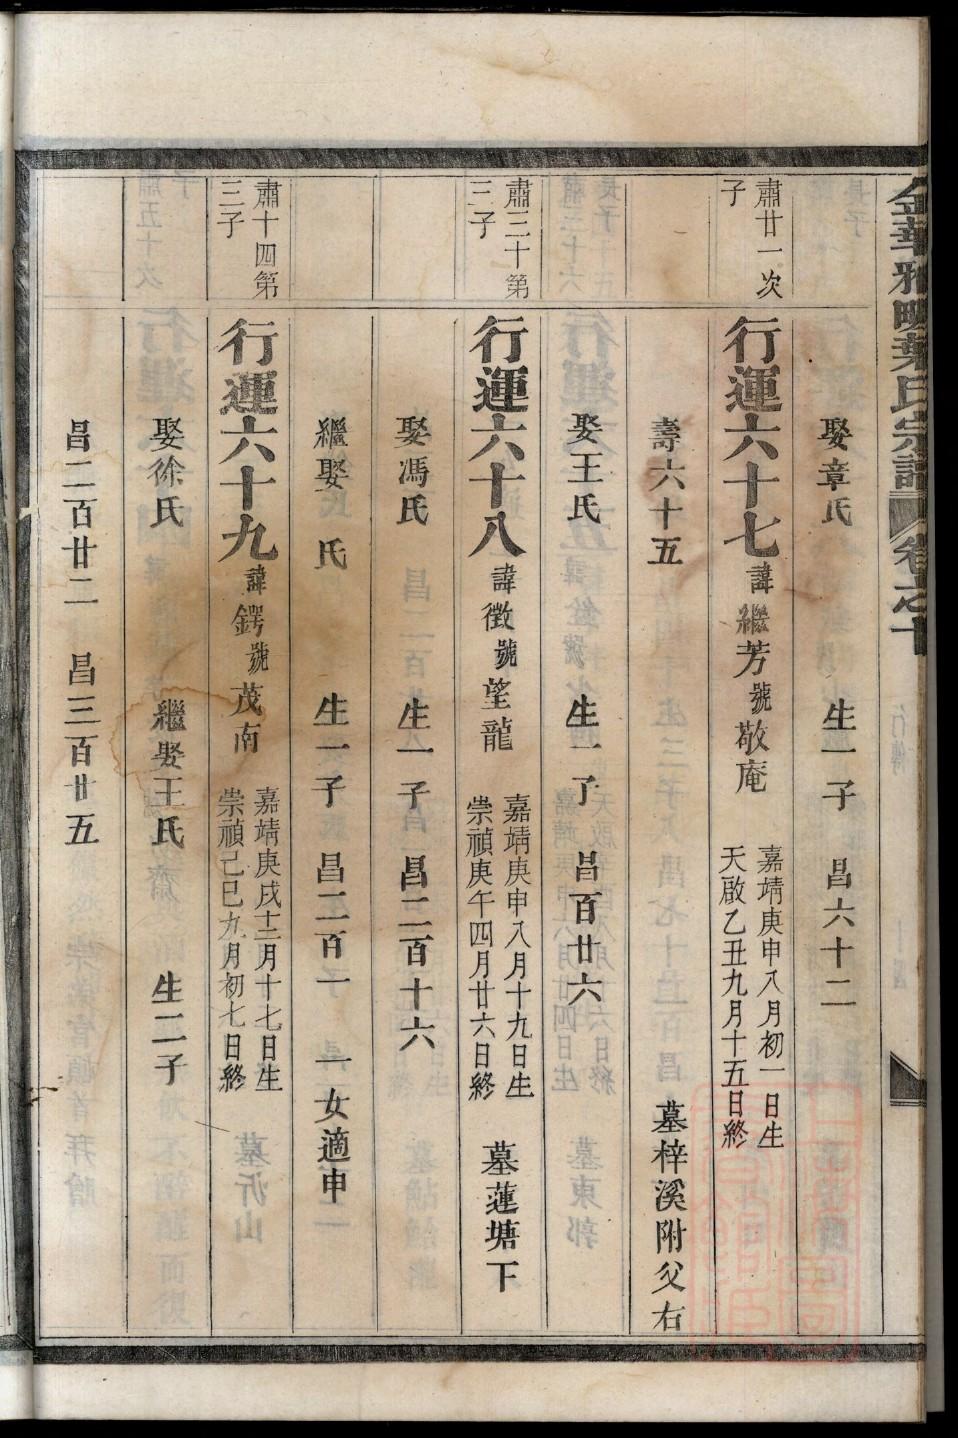 金華雅畈葉氏宗譜 卷之十
娶章氏 生一子 昌六十二
肅廿一次子
行運六十七 諱繼芳號敬庵 嘉靖庚申八月初一日生
天啟乙丑九月十五日終
壽六十五 墓梓溪附父右
娶王氏 生一子 昌百廿六
肅三十第三子
行運六十八 諱徴號望龍 嘉靖庚申八月十九日生
崇禎庚午四月廿六日終 墓蓮塘下
娶馮氏 生一子 昌二百十六
繼娶 氏 生一子 昌二百一 一女適申
肅十四第三子
行運六十九 諱鍔號茂南 嘉靖庚戌十二月十七日生
崇禎己巳九月初七日終
娶徐氏 繼娶王氏 生二子
昌二百廿二 昌三百廿五